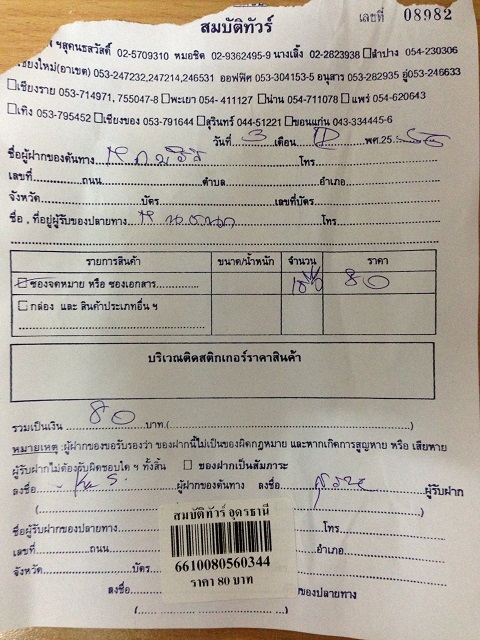 สมบัติทัวร์
เลขที่ 08982
ฯสุคนธสวัสดิ์ 02-5709310 หมอชิต 02-9362495-9 นางเลิ้ง 02-2823938 ลำปาง 054-230306
เชียงใหม่(อาเขต) 053-247232,247214,246531 ออฟฟิศ 053-304153-5 อนุสาร 053-282935 อู่053-246633
เชียงราย 053-714971, 755047-8 พะเยา 054- 411127 น่าน 054-711078 แพร่ 054-620643
เทิง 053-795452 เชียงของ 053-791644 สุรินทร์ 044-51221 ขอนแก่น 043-334445-6
วันที่ 3 เดือน พศ.25
ชื่อผู้ฝากของต้นทาง โทร
เลขที่ ถนน ตำบล อำเภอ
จังหวัด บัตร เลขที่บัตร
ชื่อ , ที่อยู่ผู้รับของปลายทาง โทร
รายการสินค้า ขนาด/น้ำหนัก จำนวน ราคา
ซองจดหมาย หรือ ซองเอกสาร 80
กล่อง และ สินค้าประเภทอื่น ฯ
บริเวณติดสติกเกอร์ราคาสินค้า
รวมเป็นเงิน 80 บาท.( )
หมายเหตุ :ผู้ฝากของขอรับรองว่า ของฝากนี้ไม่เป็นของผิดกฎหมาย และหากเกิดการสูญหาย หรือ เสียหาย
ผู้รับฝากไม่ต้องรับผิดชอบใด ฯ ทั้งสิ้น ของฝากเป็นสัมภาระ
ลงชื่อ ผู้ฝากของต้นทาง ลงชื่อ ผู้รับฝาก
ชื่อผู้รับฝากของปลายทาง โทร
เลขที่ ถนน อำเภอ
จังหวัด บัตร
ลงชื่อ ของปลายทาง
สมบัติทัวร์ อุดรธานี
6610080560344
ราคา 80 บาท